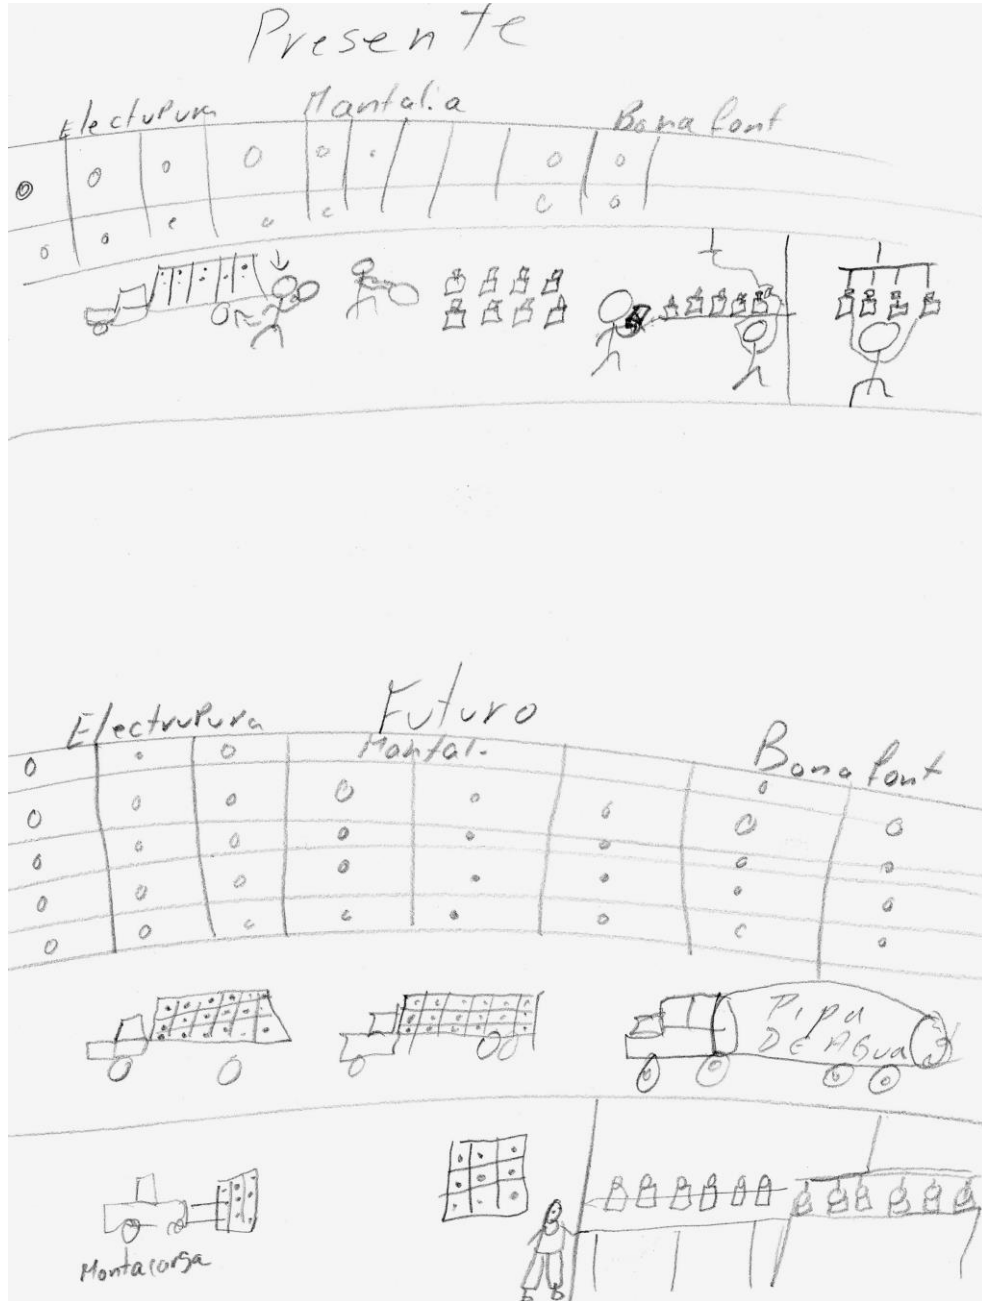 Presente
Electupura Mantalia Bonafont
Futuro
Electrupura Montal. Bonafont
Pipa
DE Agua
Montacarga